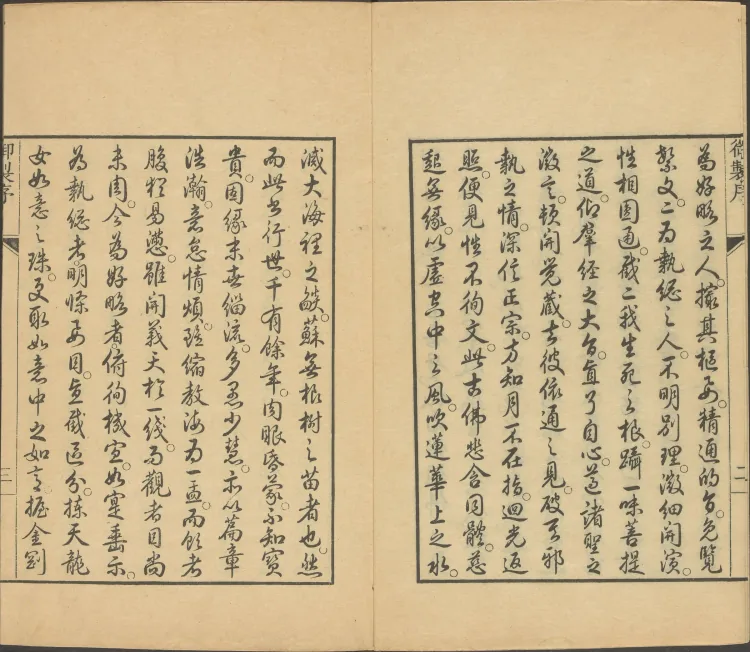 御製序
二
為好略之人。撮其樞要。精通的旨。免覽
繁文。二為執總之人。不明別理。微細開演。
性相圓通。截二我生死之根。躡一味菩提
之道。仰羣經之大旨。直了自心。遵諸聖之
微言。頓開覺藏。去彼依通之見。破其邪
執之情。深信正宗。方知月不在指。迴光返
照。便見性不徇文。此古佛悲含同體。慈
起無緣。以虛空中之風。吹蓮華上之水。
滅大海裡之燄。蘇無根樹之苗者也。然
而此書行世。千有餘年。肉眼昏蒙。不知寶
貴。因緣未喜緇流。多愚少慧。亦以篇章
浩瀚。意怠情煩。縮教海為一盂。而飲者
腹猶易懣。雖開義天於一綫。而觀者目尚
未周。今為好略者。俯徇機宜。如寔垂示。
為執總者。明條要目。直截區分。揀天龍
女如意之珠。更取如意中之如意。握金剛
御製序
三